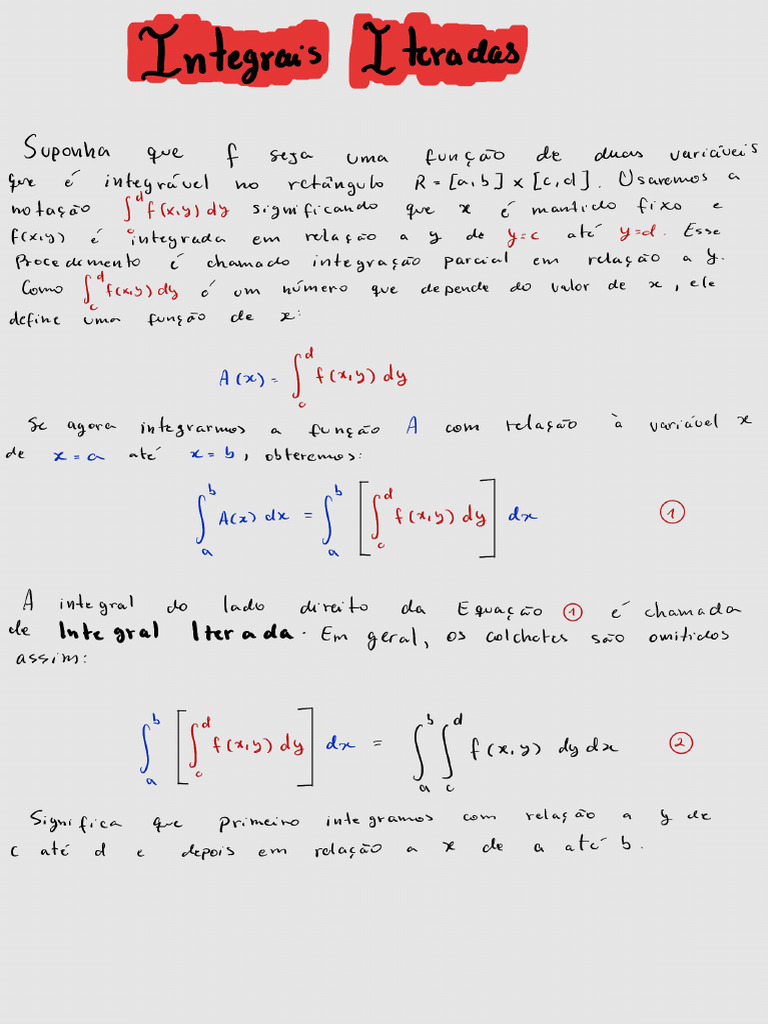 Integrais Iteradas
Suponha que f seja uma função de duas variáveis
que é integrável no retângulo R = [a,b] x [c,d]. Usaremos a
notação ∫_c^d f(x,y) dy significando que x é mantido fixo e
f(x,y) é integrada em relação a y de y=c até y=d. Esse
Procedimento é chamado integração parcial em relação a y.
Como ∫_c^d f(x,y) dy é um número que depende do valor de x, ele
define uma função de x:
A(x) = ∫_c^d f(x,y) dy
Se agora integrarmos a função A com relação à variável x
de x=a até x=b, obteremos:
∫_a^b A(x) dx = ∫_a^b [∫_c^d f(x,y) dy] dx ①
A integral do lado direito da Equação ① é chamada
de Integral Iterada. Em geral, os colchetes são omitidos
assim:
∫_a^b [∫_c^d f(x,y) dy] dx = ∫_a^b ∫_c^d f(x,y) dy dx ②
Significa que primeiro integramos com relação a y de
c até d e depois em relação a x de a até b.